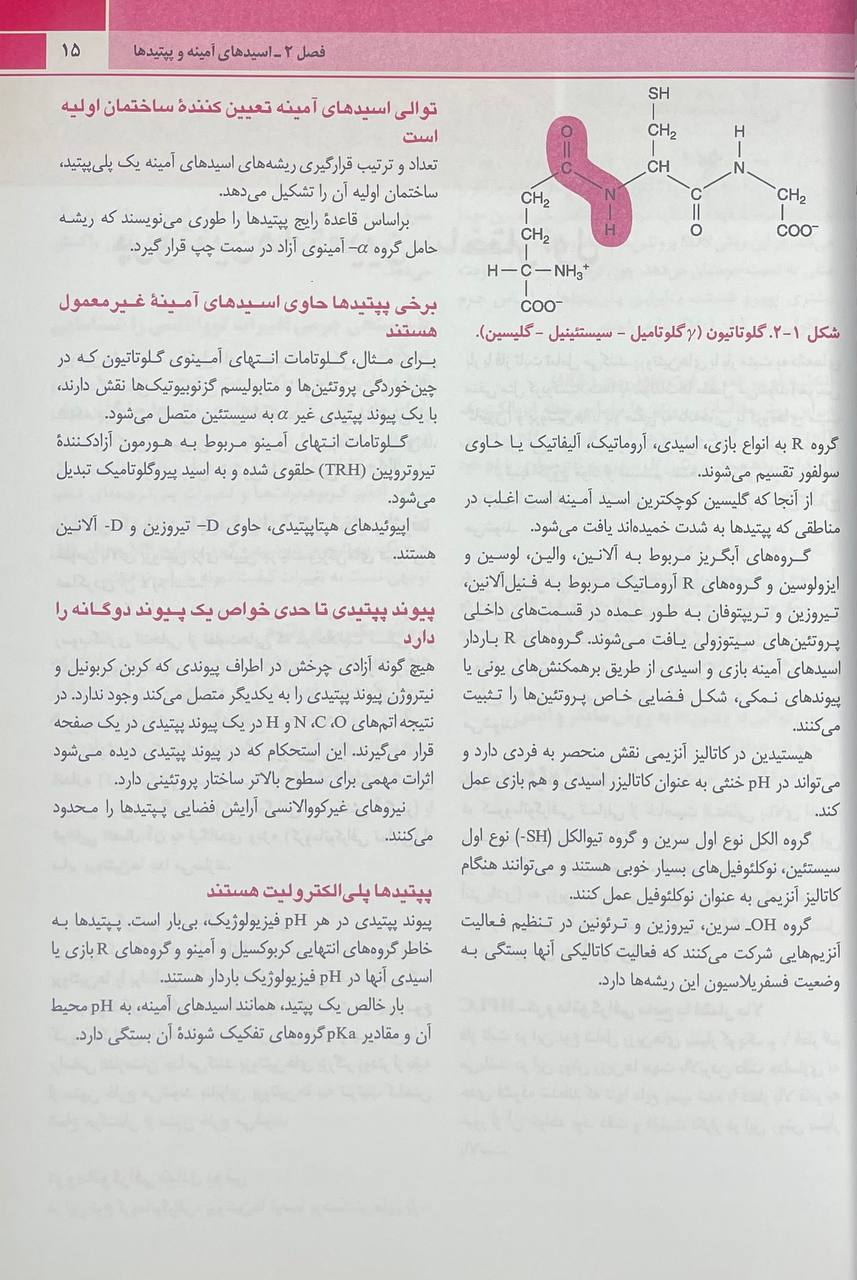 فصل ۲ ـ اسیدهای آمینه و پپتیدها
۱۵
SH
O CH₂ H
C CH N
CH₂ N C CH₂
CH₂ H O COO⁻
H—C—NH₃⁺
COO⁻
شکل ۱-۲. گلوتاتیون (γ گلوتامیل - سیستئینیل - گلیسین).
گروه R به انواع بازی، اسیدی، آروماتیک، آلیفاتیک یا حاوی
سولفور تقسیم می‌شوند.
از آنجا که گلیسین کوچکترین اسید آمینه است اغلب در
مناطقی که پپتیدها به شدت خمیده‌اند یافت می‌شود.
گروه‌های آبگریز مربوط به آلانین، والین، لوسین و
ایزولوسین و گروه‌های R آروماتیک مربوط به فنیل‌آلانین،
تیروزین و تریپتوفان به طور عمده در قسمت‌های داخلی
پروتئین‌های سیتوزولی یافت می‌شوند. گروه‌های R باردار
اسیدهای آمینه بازی و اسیدی از طریق برهمکنش‌های یونی یا
پیوندهای نمکی، شکل فضایی خاص پروتئین‌ها را تثبیت
می‌کنند.
هیستیدین در کاتالیز آنزیمی نقش منحصر به فردی دارد و
می‌تواند در pH خنثی به عنوان کاتالیزر اسیدی و هم بازی عمل
کند.
گروه الکل نوع اول سرین و گروه تیوالکل (SH-) نوع اول
سیستئین، نوکلئوفیل‌های بسیار خوبی هستند و می‌توانند هنگام
کاتالیز آنزیمی به عنوان نوکلئوفیل عمل کنند.
گروه OH ـ سرین، تیروزین و ترئونین در تنظیم فعالیت
آنزیم‌هایی شرکت می‌کنند که فعالیت کاتالیکی آنها بستگی به
وضعیت فسفریلاسیون این ریشه‌ها دارد.
توالی اسیدهای آمینه تعیین کنندهٔ ساختمان اولیه
است
تعداد و ترتیب قرارگیری ریشه‌های اسیدهای آمینه یک پلی‌پپتید،
ساختمان اولیه آن را تشکیل می‌دهد.
براساس قاعدهٔ رایج پپتیدها را طوری می‌نویسند که ریشه
حامل گروه α- آمینوی آزاد در سمت چپ قرار گیرد.
برخی پپتیدها حاوی اسیدهای آمینهٔ غیرمعمول
هستند
برای مثال، گلوتامات انتهای آمینوی گلوتاتیون که در
چین‌خوردگی پروتئین‌ها و متابولیسم گزنوبیوتیک‌ها نقش دارند،
با یک پیوند پپتیدی غیر α به سیستئین متصل می‌شود.
گلوتامات انتهای آمینو مربوط به هورمون آزادکنندهٔ
تیروتروپین (TRH) حلقوی شده و به اسید پیروگلوتامیک تبدیل
می‌شود.
اپیوئیدهای هپتاپپتیدی، حاوی D- تیروزین و D- آلانین
هستند.
پیوند پپتیدی تا حدی خواص یک پیوند دوگانه را
دارد
هیچ گونه آزادی چرخش در اطراف پیوندی که کربن کربونیل و
نیتروژن پیوند پپتیدی را به یکدیگر متصل می‌کند وجود ندارد. در
نتیجه اتم‌های N ،C ،O و H در یک پیوند پپتیدی در یک صفحه
قرار می‌گیرند. این استحکام که در پیوند پپتیدی دیده می‌شود
اثرات مهمی برای سطوح بالاتر ساختار پروتئینی دارد.
نیروهای غیرکووالانسی آرایش فضایی پپتیدها را محدود
می‌کنند.
پپتیدها پلی‌الکترولیت هستند
پیوند پپتیدی در هر pH فیزیولوژیک، بی‌بار است. پپتیدها به
خاطر گروه‌های انتهایی کربوکسیل و آمینو و گروه‌های R بازی یا
اسیدی آنها در pH فیزیولوژیک باردار هستند.
بار خالص یک پپتید، همانند اسیدهای آمینه، به pH محیط
آن و مقادیر pKa گروه‌های تفکیک شوندهٔ آن بستگی دارد.